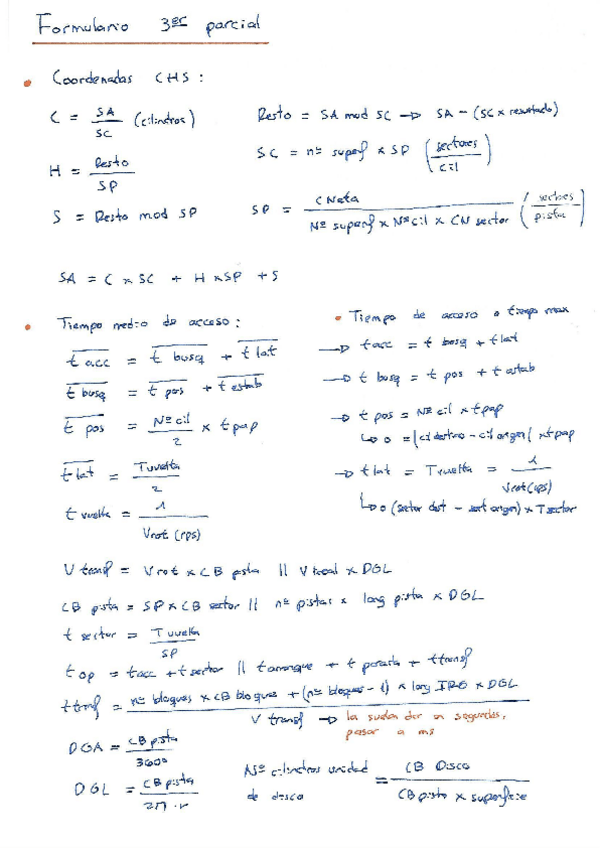 Formulario 3er parcial
• Coordenadas CHS:
C = SA / SC (cilindros)
Resto = SA mod SC → SA - (SC x resultado)
H = Resto / SP
SC = nº superf x SP (sectores / cil)
S = Resto mod SP
SP = CNeta / Nº superf x Nº cil x CN sector (sectores / pista)
SA = C x SC + H x SP + S
• Tiempo medio de acceso:
t acc = t busq + t lat
t busq = t pos + t estab
t pos = Nº cil / 2 x t pap
t lat = T vuelta / 2
t vuelta = 1 / Vrot (rps)
• Tiempo de acceso o tiempo max
→ t acc = t busq + t lat
→ t busq = t pos + t estab
→ t pos = Nº cil x t pap
↳ o = |cil destino - cil origen| x t pap
→ t lat = T vuelta = 1 / Vrot (rps)
↳ o (sector dest - sect origen) x T sector
V transf = Vrot x CB pista || V real x DGL
CB pista = SP x CB sector || nº pistas x long pista x DGL
t sector = T vuelta / SP
t op = t acc + t sector || t arranque + t parada + t transf
t transf = nº bloques x CB bloques + (nº bloques - 1) x long IRG x DGL / V transf → la suelen dar en segundos, pasar a ms
DGA = CB pista / 360º
DGL = CB pista / 2π·r
Nº cilindros unidad de disco = CB Disco / CB pista x superficie